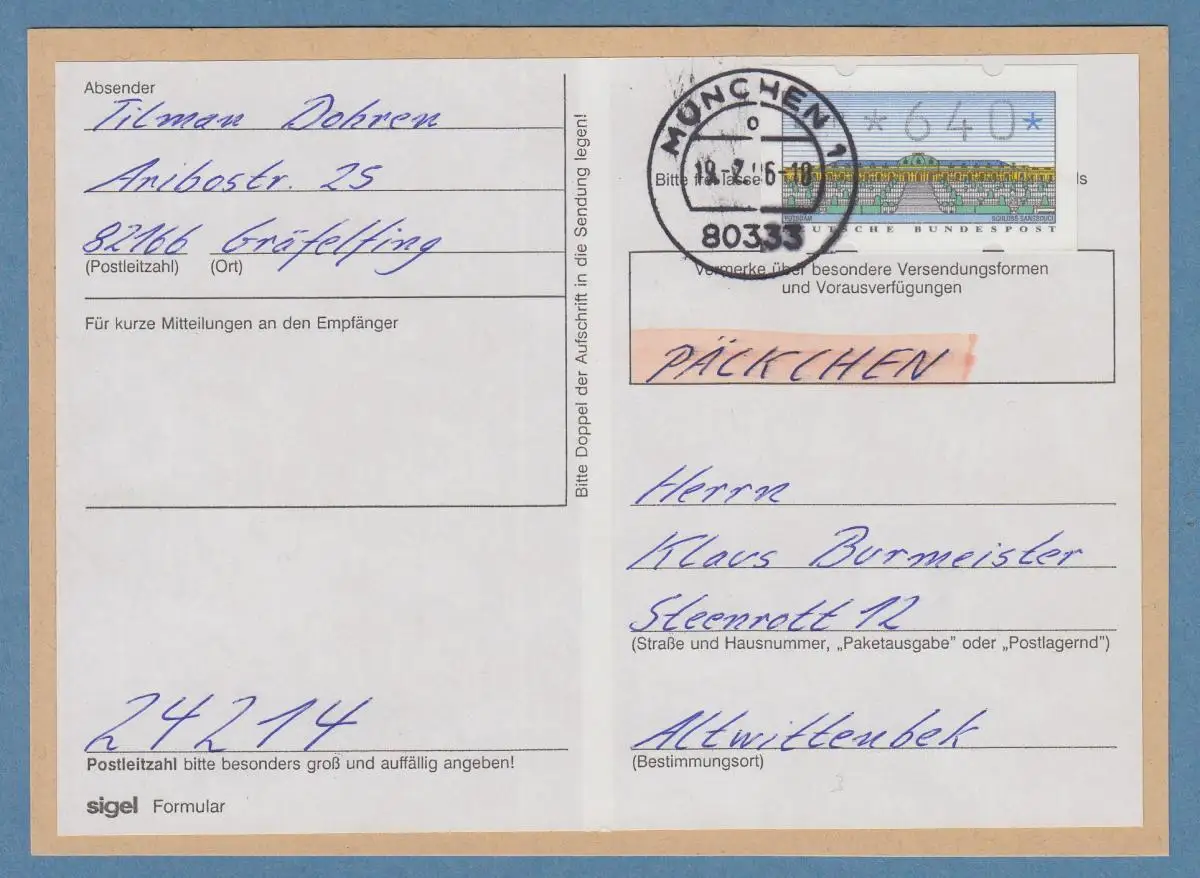 Absender
Tilman Dohren
Aribostr. 25
82166 Gräfelfing
(Postleitzahl) (Ort)
Für kurze Mitteilungen an den Empfänger
Bitte Doppel der Aufschrift in die Sendung legen!
24214
Postleitzahl bitte besonders groß und auffällig angeben!
sigel Formular
MÜNCHEN 1
80333
*640*
POTSDAM SCHLOSS SANSSOUCI
DEUTSCHE BUNDESPOST
Bitte
Vermerke über besondere Versendungsformen
und Vorausverfügungen
PÄCKCHEN
Herrn
Klaus Burmeister
Steenrott 12
(Straße und Hausnummer, „Paketausgabe" oder „Postlagernd")
Altwittenbek
(Bestimmungsort)